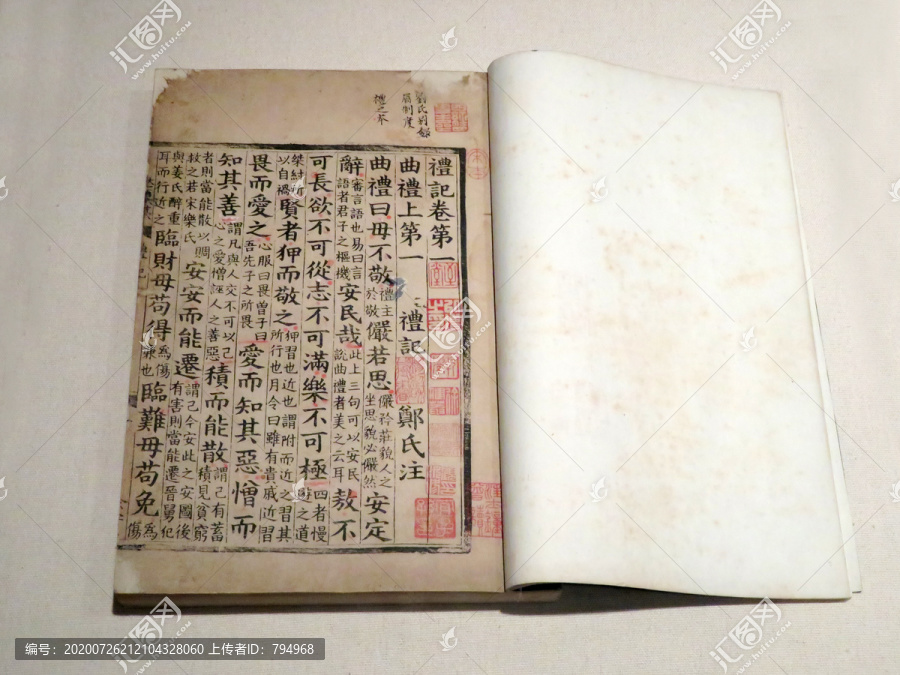 劉氏別錄
屬制度
禮記卷第一
曲禮上第一 禮記 鄭氏注
曲禮曰毋不敬禮主於敬儼若思儼矜莊貌人之坐思貌必儼然安定
辭審言語也易曰言語者君子之樞機安民哉此上三句可以安民說曲禮者美之云耳敖不
可長欲不可從志不可滿樂不可極四者慢遊之道
桀紂所以自禍賢者狎而敬之狎習也近也謂附而近之習其所行也月令曰雖有貴戚近習
畏而愛之心服曰畏曾子曰吾先子之所畏愛而知其惡憎而
知其善謂凡與人交不可以己心之愛憎誣人之善惡積而能散謂己有蓄積見貧窮
者則當能散以賙救之若宋樂氏安安而能遷謂己今安此之安圖後有害則當能遷晉舅犯
與姜氏醉重耳而行近之臨財毋苟得為傷廉也臨難毋苟免為傷
汇图网
www.huitu.com
编号：20200726212104328060 上传者ID：794968